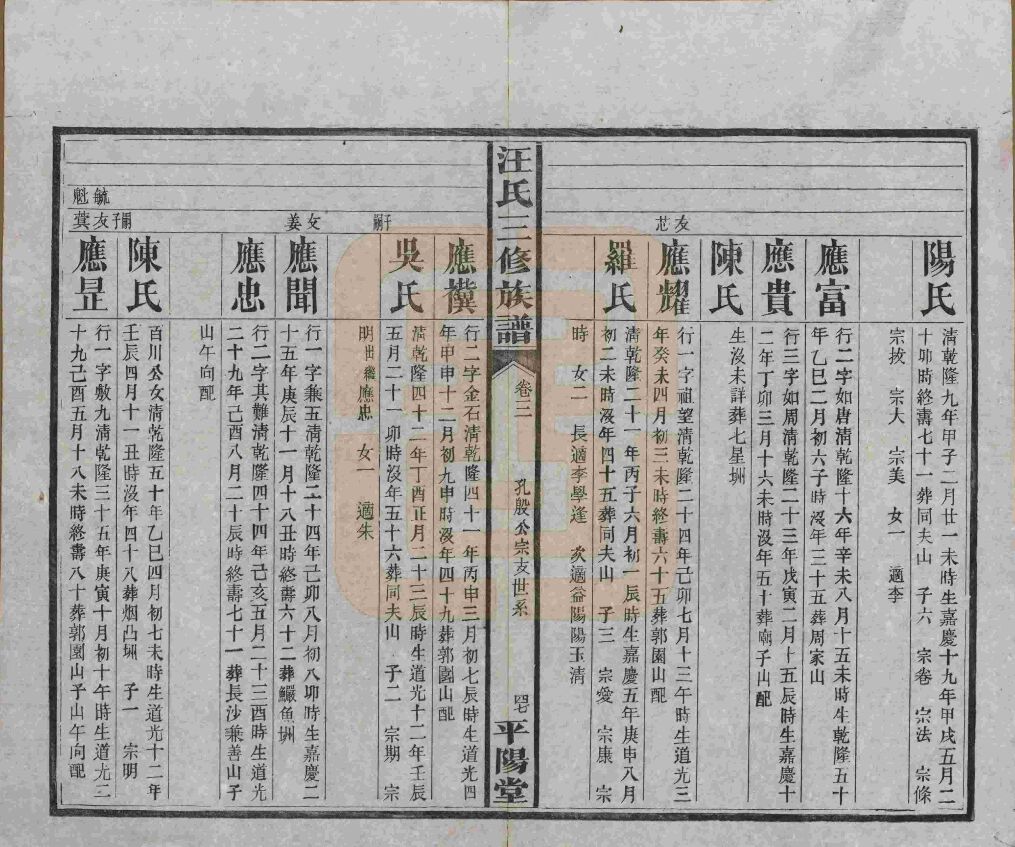 陽氏
清乾隆九年甲子二月廿一未時生嘉慶十九年甲戌五月二
十卯時終壽七十一葬同夫山 子六 宗卷 宗法 宗條
宗 宗大 宗美 女一 適李
應富
行二字如唐清乾隆十六年辛未八月十五未時生乾隆五十
年乙巳二月初六子時沒年三十五葬周家山
應貴
行三字如周清乾隆二十三年戊寅二月十五辰時生嘉慶十
二年丁卯三月十六未時沒年五十葬廟子山配
陳氏
生沒未詳葬七星坤
友芯
應耀
行一字祖望清乾隆二十四年己卯七月十三午時生道光三
年癸未四月初三未時終壽六十五葬郭園山配
羅氏
清乾隆二十一年丙子六月初一辰時生嘉慶五年庚申八月
初二未時沒年四十五葬同夫山 子三 宗愛 宗康 宗
時 女一 長適李學逢 次適益陽陽玉清
汪氏三修族譜
卷三
孔殷公宗支世系
四七
平陽堂
應襆
行二字金石清乾隆四十一年丙申三月初七辰時生道光四
年甲申十二月初九申時沒年四十九葬郭園山配
子嗣
吳氏
清乾隆四十二年丁酉正月二十三辰時生道光十二年壬辰
五月二十一卯時沒年五十六葬同夫山 子二 宗期 宗
明出繼應忠 女一 適朱
友姜
應聞
行一字乘五清乾隆二十四年己卯八月初八卯時生嘉慶二
十五年庚辰十一月十八丑時終壽六十二葬鱺魚坤
應忠
行二字其難清乾隆四十四年己亥五月二十三酉時生道光
二十九年己酉八月二十辰時終壽七十一葬長沙乘善山子
山午向配
陳氏
百川公女清乾隆五十年乙巳四月初七未時生道光十二年
壬辰四月十一丑時沒年四十八葬烟凸坤 子一 宗明
毓魁
友蓂
應昰
行一字敷九清乾隆三十五年庚寅十月初十午時生道光二
十九己酉五月十八未時終壽八十葬郭園山子山午向配